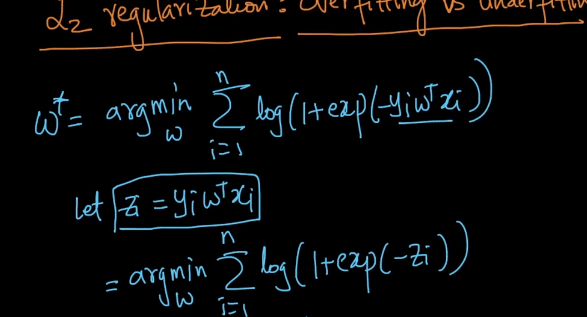 L2 regularization: Overfitting vs underfittin
w* = argmin_w Σ_{i=1}^{n} log(1+exp(-yiwᵀxi))
Let zi = yiwᵀxi
= argmin_w Σ_{i=1}^{n} log(1+exp(-zi))